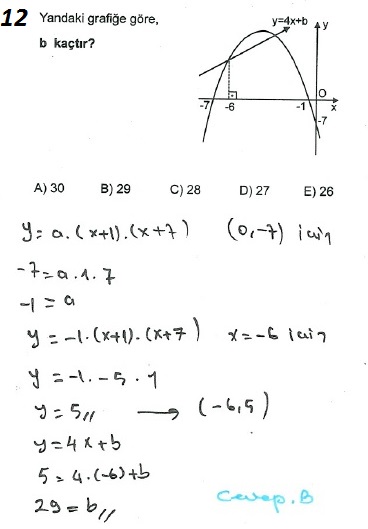 12 Yandaki grafiğe göre,
b kaçtır?
y=4x+b
y
-7 -6 -1 O x
-7
A) 30 B) 29 C) 28 D) 27 E) 26
y = a.(x+1).(x+7) (0,-7) için
-7 = a.1.7
-1 = a
y = -1.(x+1).(x+7) x=-6 için
y = -1.-5.1
y = 5,, → (-6,5)
y = 4x+b
5 = 4.(-6)+b
29 = b,,
Cevap.B